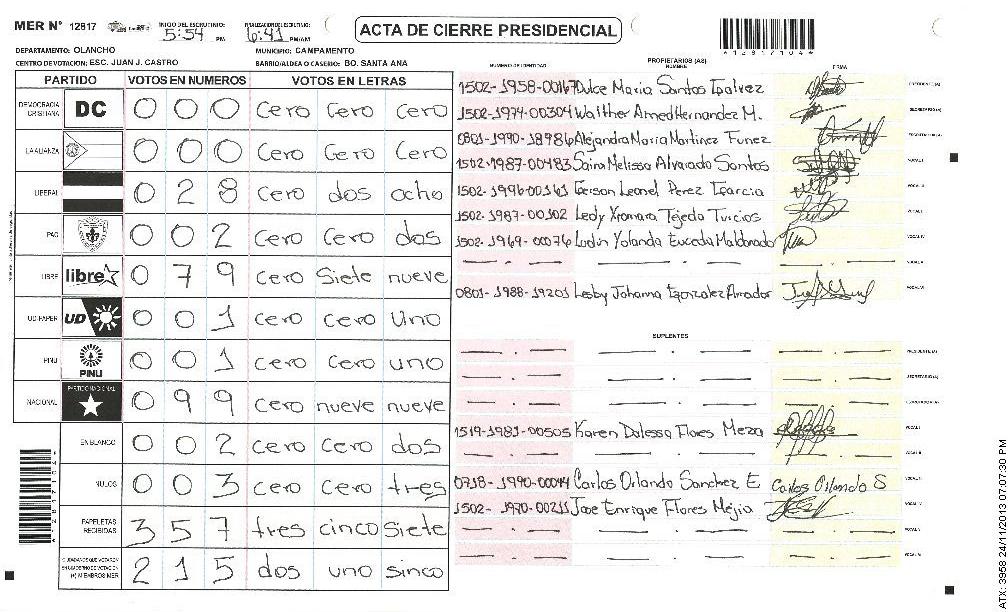 MER N° 12817 INICIO DEL ESCRUTINIO: 5:54 PM FINALIZACION DEL ESCRUTINIO: 6:41 PM/AM
ACTA DE CIERRE PRESIDENCIAL
*12817104*
DEPARTAMENTO: OLANCHO MUNICIPIO: CAMPAMENTO
CENTRO DE VOTACION: ESC. JUAN J. CASTRO BARRIO/ALDEA O CASERIO: BO. SANTA ANA
PARTIDO VOTOS EN NUMEROS VOTOS EN LETRAS
DEMOCRACIA CRISTIANA DC 0 0 0 cero cero cero
LA ALIANZA 0 0 0 cero cero cero
LIBERAL 0 2 8 cero dos ocho
PAC 0 0 2 cero cero dos
LIBRE libre 0 7 9 cero siete nueve
UD-FAPER UD 0 0 1 cero cero uno
PINU PINU 0 0 1 cero cero uno
NACIONAL PARTIDO NACIONAL 0 9 9 cero nueve nueve
EN BLANCO 0 0 2 cero cero dos
NULOS 0 0 3 cero cero tres
PAPELETAS RECIBIDAS 3 5 7 tres cinco siete
CIUDADANOS QUE VOTARON EN CUADERNO DE VOTACION (+) MIEMBROS MER 2 1 5 dos uno sinco
PROPIETARIOS (AS)
NUMERO DE IDENTIDAD NOMBRE FIRMA
1502-1958-00167 Dulce Maria Santos Galvez PRESIDENTE (A)
1502-1974-00304 Walther Amed Hernandez M. SECRETARIO (A)
0801-1990-18986 Alejandra Maria Martinez Funez ESCRUTADOR (A)
1502-1987-00483 Saira Melissa Alvarado Santos VOCAL I
1502-1996-00161 Gerson Leonel Perez Garcia VOCAL II
1502-1987-00102 Ledy Xiomara Tejeda Turcios VOCAL III
1502-1969-00076 Yolanda Maldonado VOCAL IV
VOCAL V
0801-1988-19201 Lesby Johanna Gonzalez Amador VOCAL VI
SUPLENTES
PRESIDENTE (A)
SECRETARIO (A)
ESCRUTADOR (A)
1519-1981-00505 Karen Dalessa Flores Meza VOCAL I
VOCAL II
0718-1990-00044 Carlos Orlando Sanchez E Carlos Orlando S VOCAL III
1502-1970-00211 Jose Enrique Flores Mejia VOCAL IV
VOCAL V
VOCAL VI
ATX: 3958 24/11/2013 07:07:30 PM